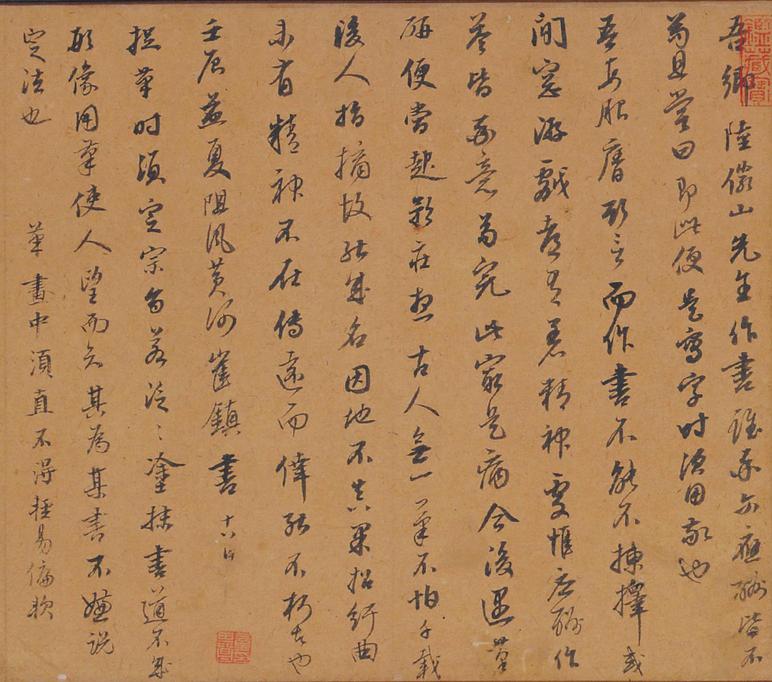 吾鄉陸儼山先生作書雖率爾應酬皆不
苟且嘗曰即此便是寫字時須用敬也
吾每服膺斯言而作書不能不揀擇或
閒窓游戲都有著精神處惟應酬作
荅皆率意苟完此最是病今後遇筆
研便當起矜莊想古人無一筆不怕千載
後人指摘故能成名因地不真果招紆曲
未有精神不在傳遠而倖能不朽者也
壬辰孟夏阻風黃河崔鎮書 十八日
捉筆時須定宗旨若泛〻塗抹書道不成
形像用筆使人望而知其為某書不嫌說
定法也 筆畫中須直不得輕易偏軟